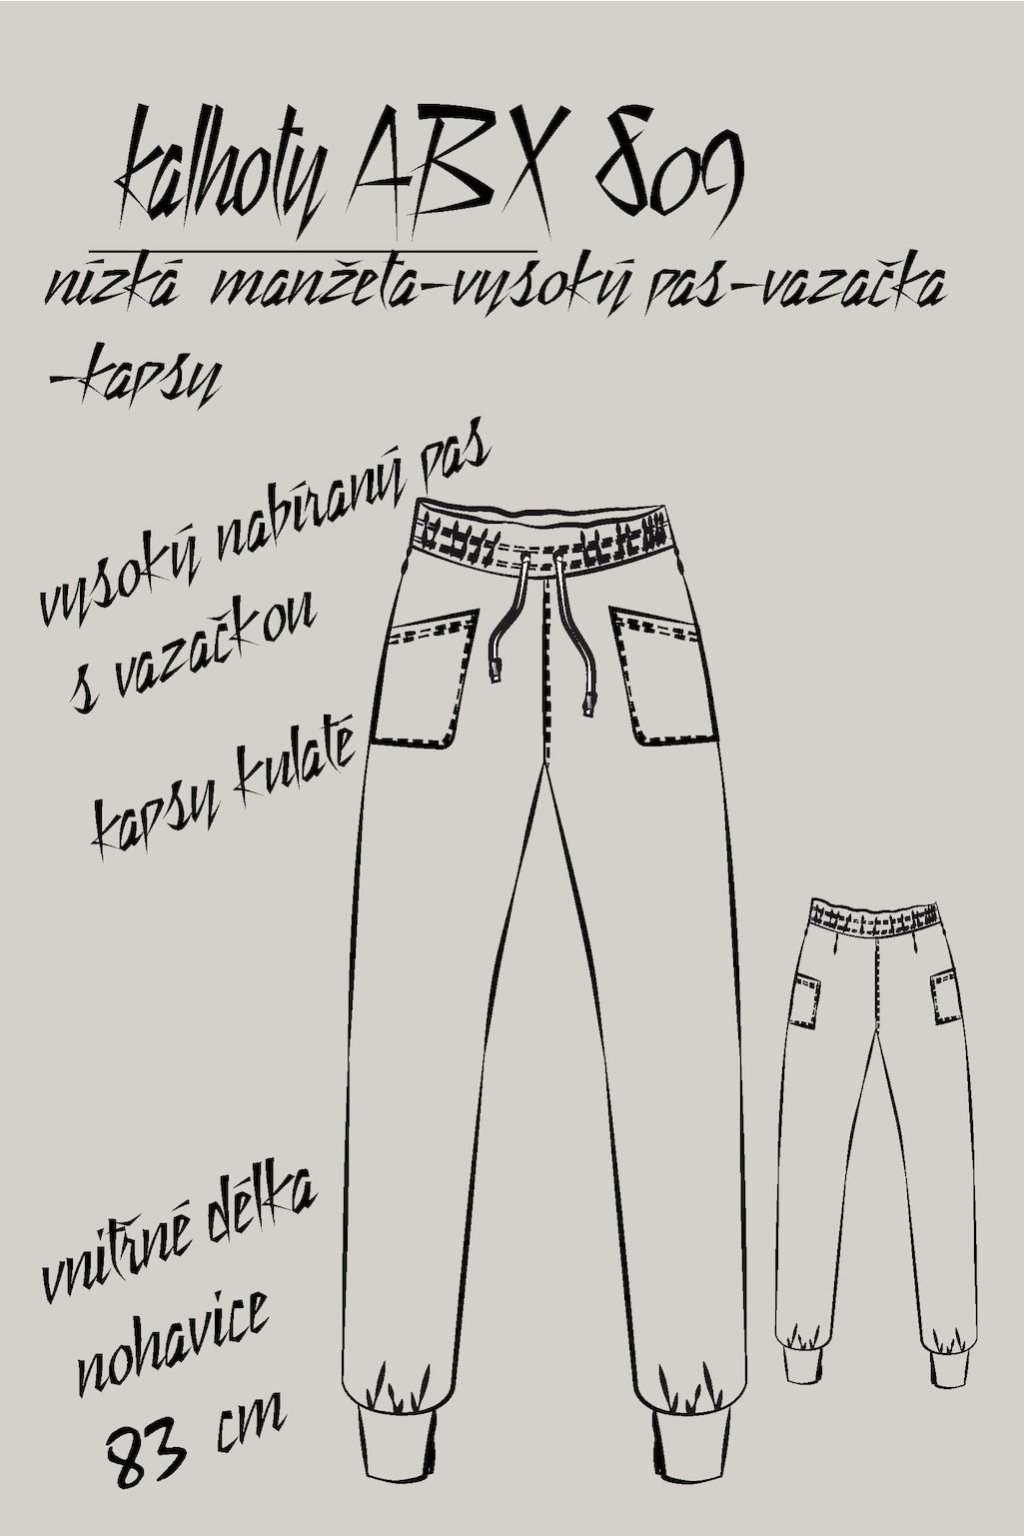 kalhoty ABX 809
nízká manžeta-vysoký pas-vazačka
-kapsy
vysoký nabíraný pas
s vazačkou
kapsy kulaté
vnitřné délka
nohavice
83 cm